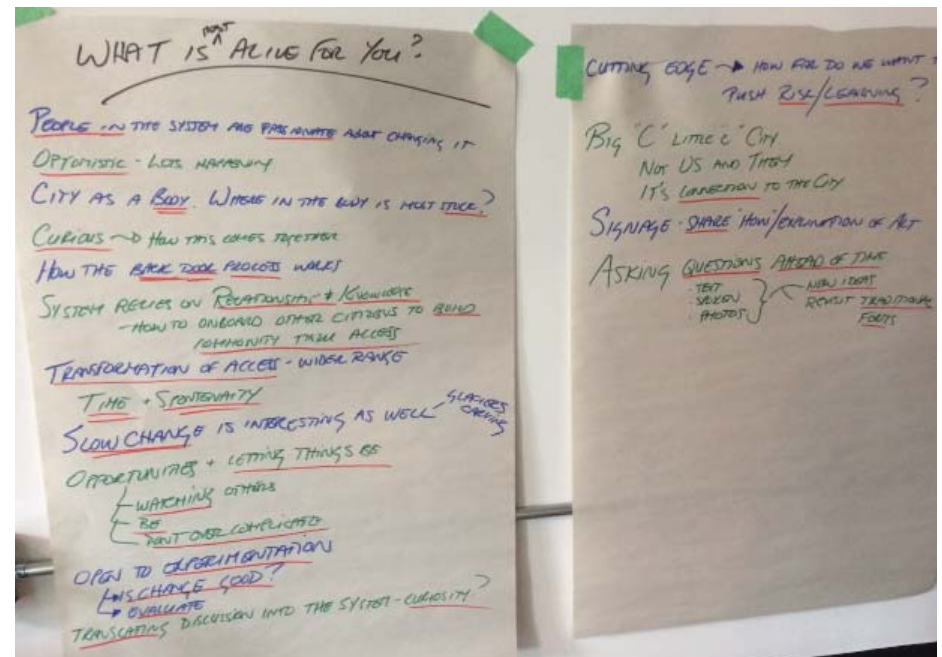 WHAT IS MOST ALIVE FOR YOU?
PEOPLE IN THE SYSTEM ARE PASSIONATE ABOUT CHANGING IT
OPTOMISTIC - LOTS HAPPENING
CITY AS A BODY. WHERE IN THE BODY IS MOST STUCK?
CURIOUS → HOW THIS COMES TOGETHER
HOW THE BACK DOOR PROCESS WORKS
SYSTEM RELIES ON RELATIONSHIPS + KNOWLEDGE
- HOW TO ONBOARD OTHER CITIZENS TO BUILD
COMMUNITY THRU ACCESS
TRANSFORMATION OF ACCESS - WIDER RANGE
TIME + SPONTENAITY
SLOW CHANGE IS INTERESTING AS WELL - GLACIERS
CARVING
OPPORTUNITIES + LETTING THINGS BE
WATCHING OTHERS
BE
DON'T OVER COMPLICATE
OPEN TO EXPERIMENTATION
IS CHANGE GOOD?
EVALUATE
TRANSLATING DISCUSSION INTO THE SYSTEM - CURIOSITY?
CUTTING EDGE → HOW FAR DO WE WANT
PUSH RISK/LEARNING?
BIG "C" LITTLE "C" CITY
NOT US AND THEY
IT'S CONNECTION TO THE CITY
SIGNAGE - SHARE "HOW"/EXPLANATION OF ART
ASKING QUESTIONS AHEAD OF TIME
- TEXT
- SPOKEN
- PHOTOS
NEW IDEAS
REVISIT TRADITIONAL
FORTS